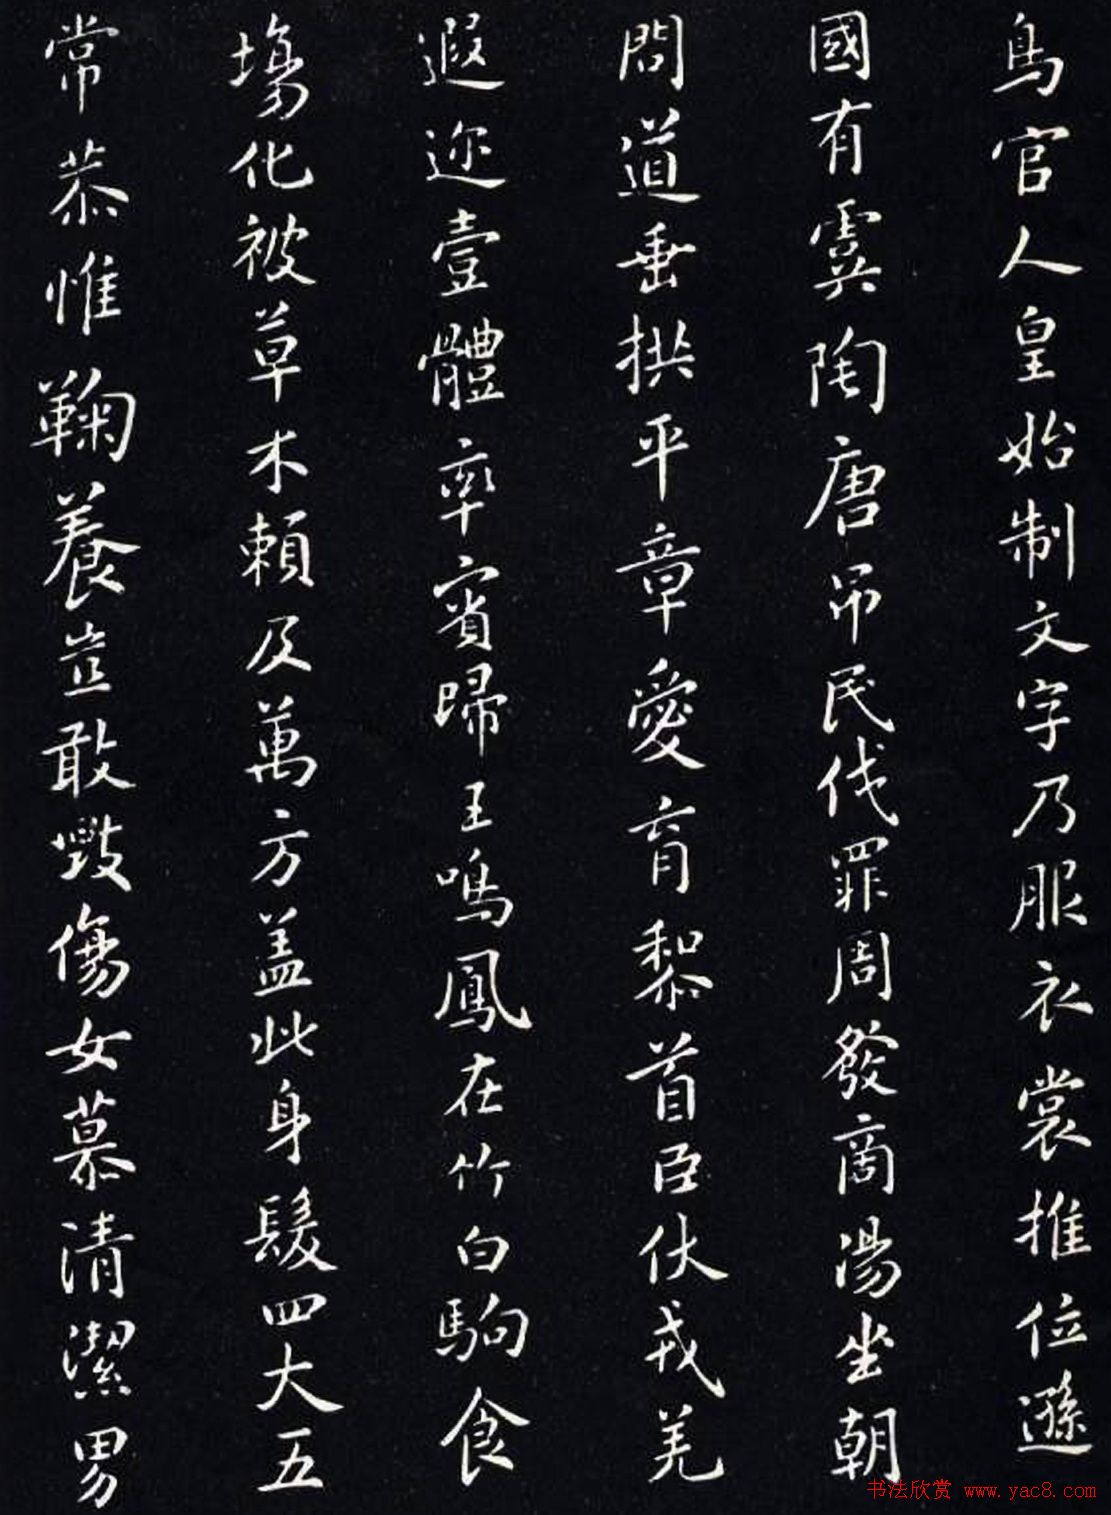 鳥官人皇始制文字乃服衣裳推位遜
國有虞陶唐吊民伐罪周發商湯坐朝
問道垂拱平章愛育黎首臣伏戎羌
遐迩壹體率賓歸王鳴鳳在竹白駒食
場化被草木賴及萬方盖此身髮四大五
常恭惟鞠養豈敢毀傷女慕清潔男
书法欣赏 www.yac8.com